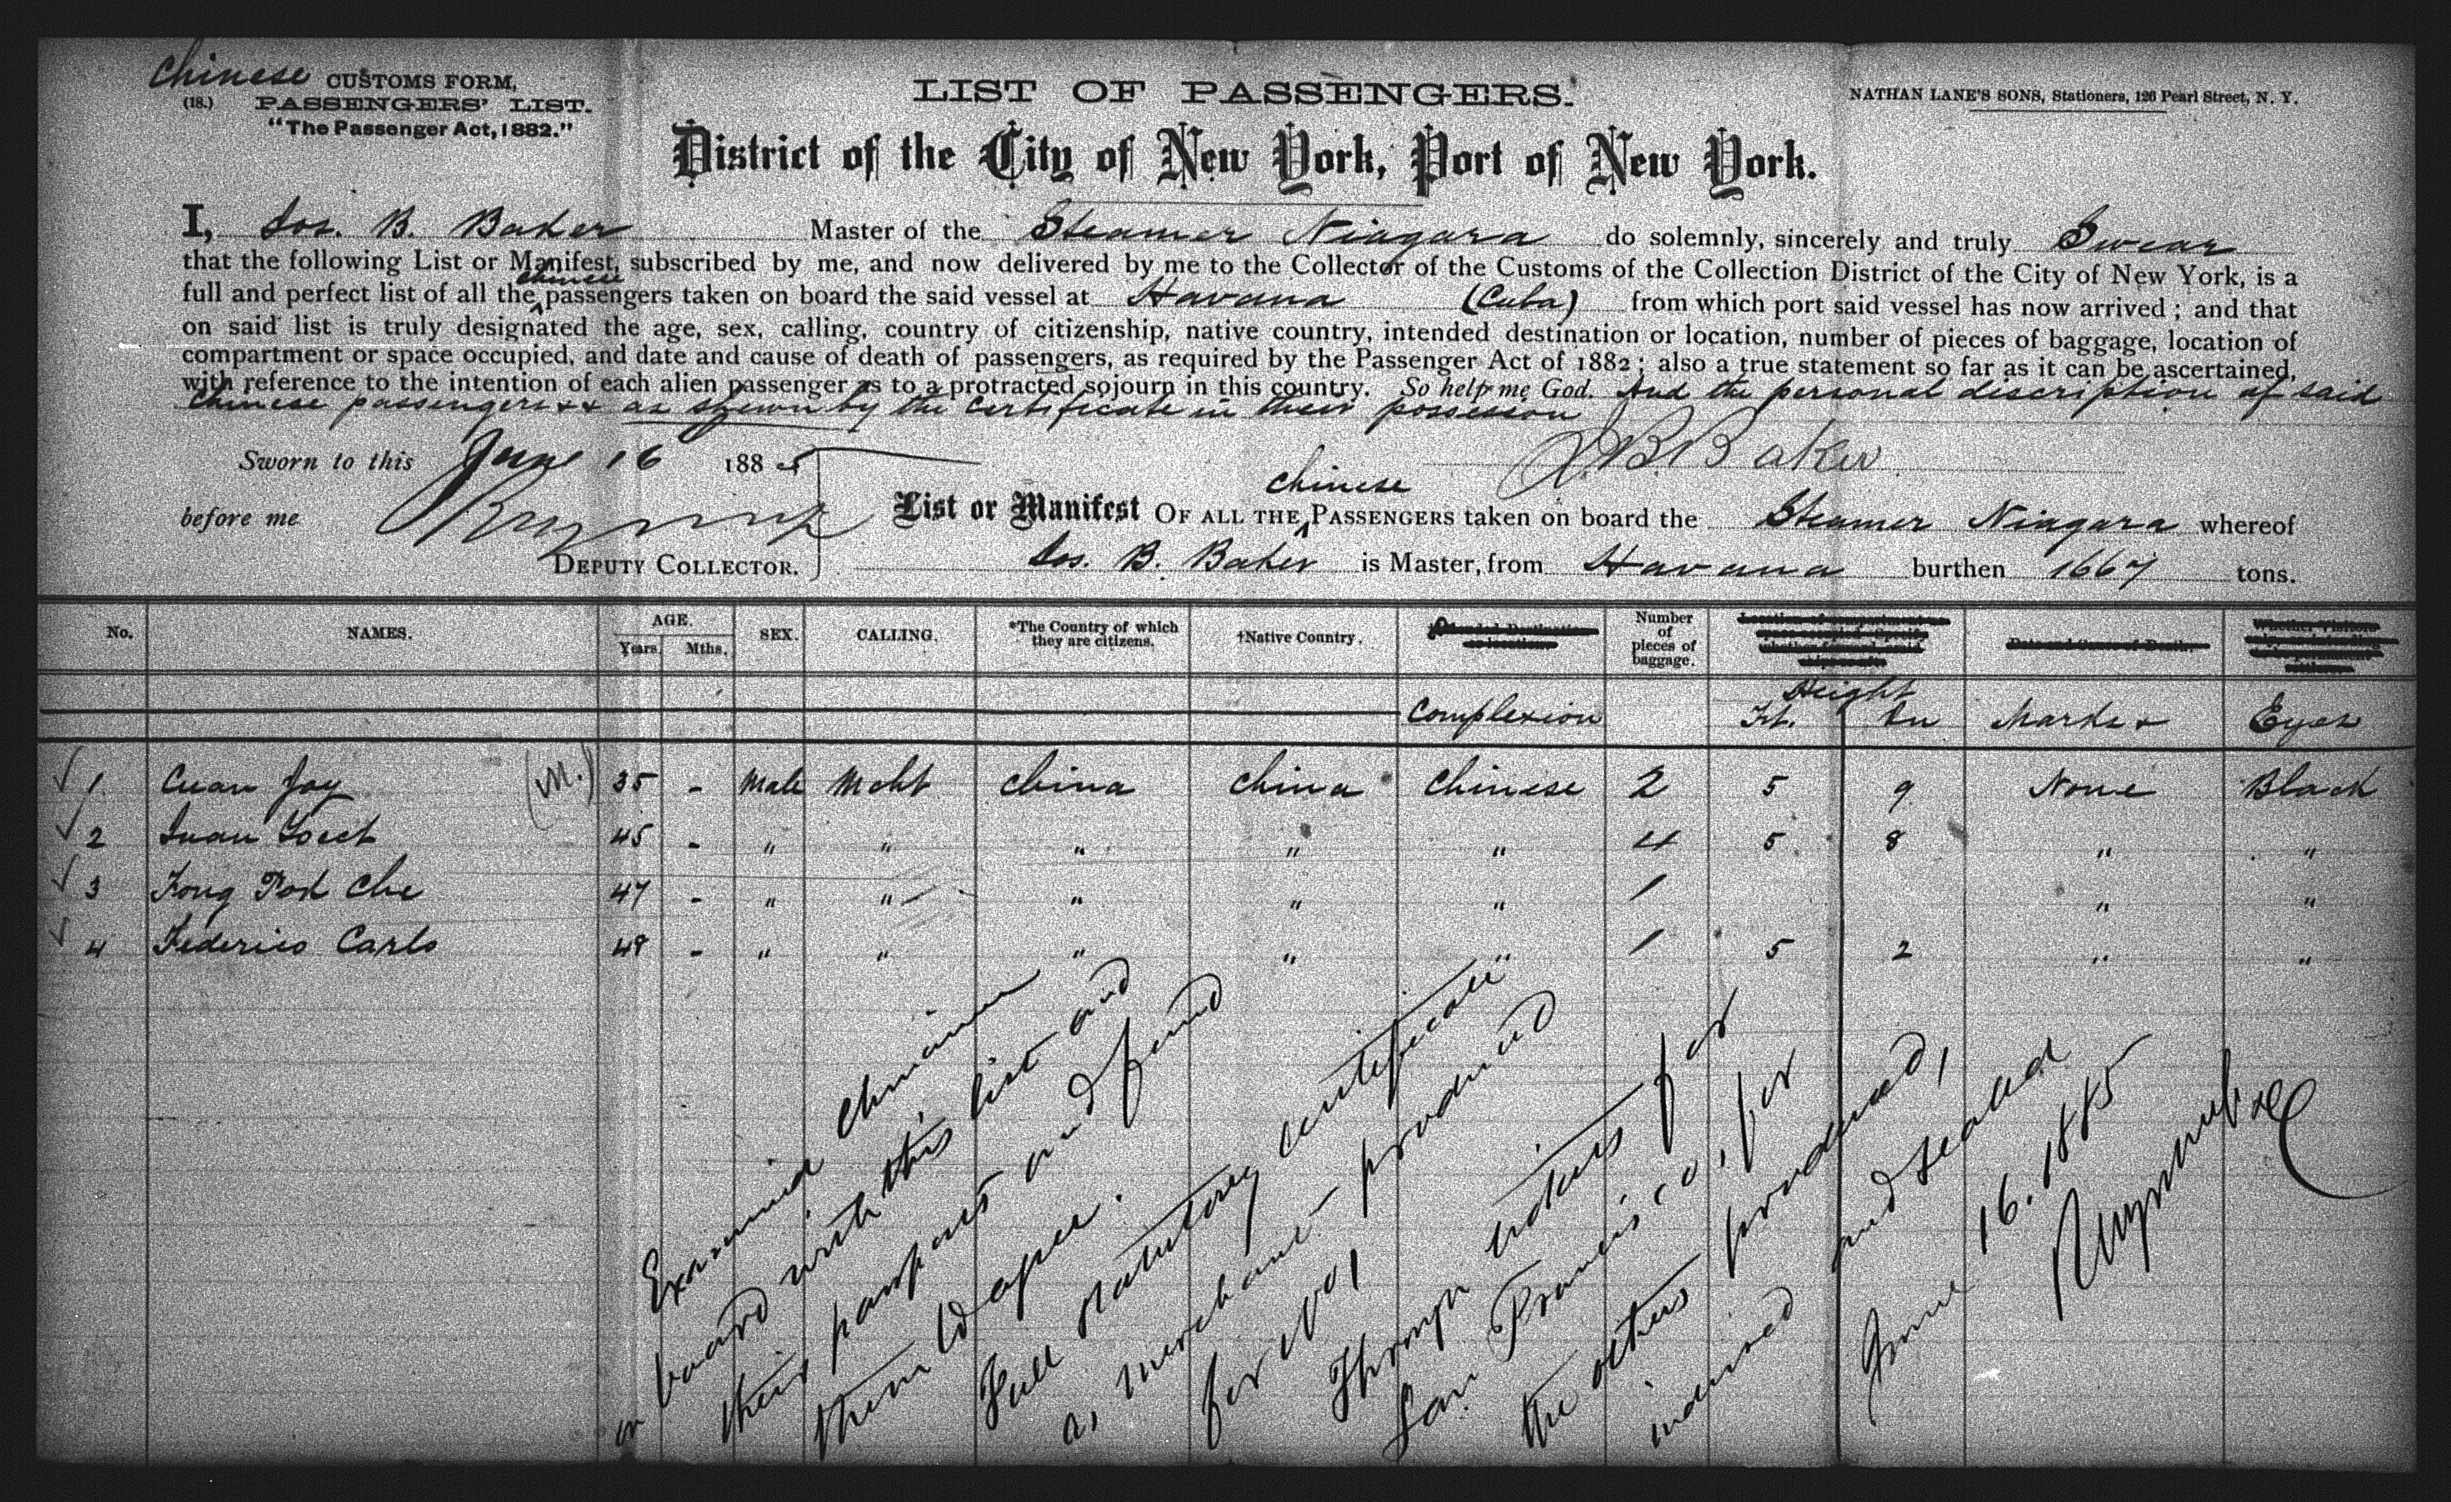 Chinese CUSTOMS FORM,
(18.) PASSENGERS' LIST.
"The Passenger Act, 1882."
LIST OF PASSENGERS.
NATHAN LANE'S SONS, Stationers, 126 Pearl Street, N. Y.
District of the City of New York, Port of New York.
I, Jos. B. Baker Master of the Steamer Niagara do solemnly, sincerely and truly Swear
that the following List or Manifest, subscribed by me, and now delivered by me to the Collector of the Customs of the Collection District of the City of New York, is a
full and perfect list of all the Chinese passengers taken on board the said vessel at Havana (Cuba) from which port said vessel has now arrived; and that
on said list is truly designated the age, sex, calling, country of citizenship, native country, intended destination or location, number of pieces of baggage, location of
compartment or space occupied, and date and cause of death of passengers, as required by the Passenger Act of 1882; also a true statement so far as it can be ascertained,
with reference to the intention of each alien passenger as to a protracted sojourn in this country. So help me God. And the personal discription of said
Chinese passengers as shewn by the certificate in their possession
Sworn to this June 16 1885
J. B. Baker
before me
DEPUTY COLLECTOR.
List or Manifest OF ALL THE Chinese PASSENGERS taken on board the Steamer Niagara whereof
Jos. B. Baker is Master, from Havana burthen 1667 tons.
No. NAMES. AGE. Years. Mths. SEX. CALLING. *The Country of which they are citizens. †Native Country. Number of pieces of baggage. Date and Cause of Death.
Complexion Height Ft. In Marks Eyes
1 Cuan Joy (M.) 35 - Male Mcht China China Chinese 2 5 9 None Black
2 45 - " " " " " 4 5 8 " "
3 Fong Pok Che 47 - " " " " " 1 " "
4 Federico Carlo 48 - " " " " " 1 5 2 " "
Examined Chinamen
on board with this list and
their passports and found
them to agree.
Full statutory certificate
a, merchant produced
for No 1
Through tickets for
San Francisco, for
the others produced,
indorsed and sealed
June 16. 1885